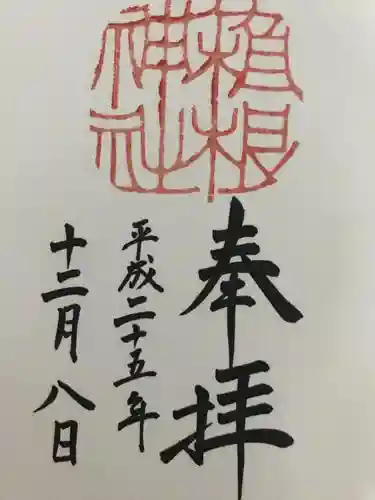 植根神社
奉拝
平成二十五年
十二月八日